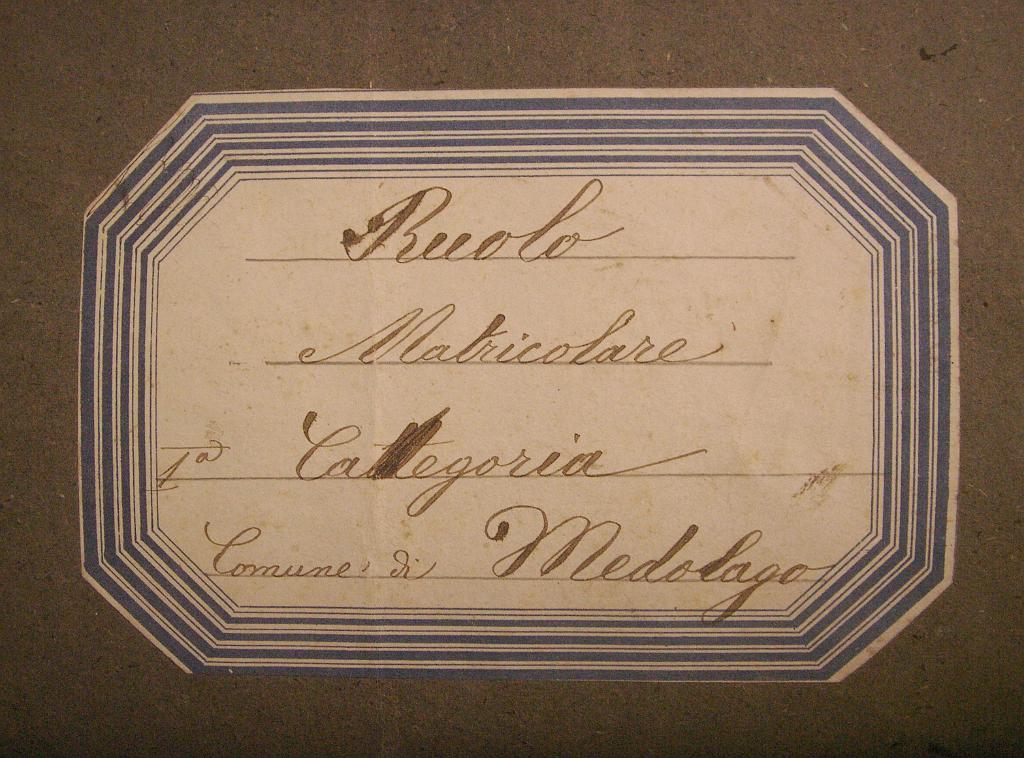 Ruolo
Matricolare
1ª Cattegoria
Comune di Medolago